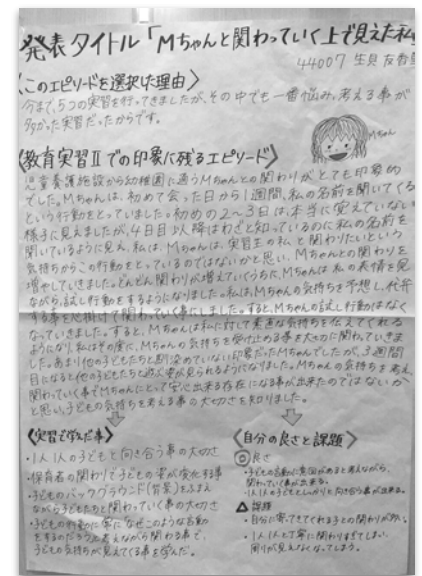 発表タイトル「Mちゃんと関わっていく上で見えた私
44007 生貝 友香
〈このエピソードを選択した理由〉
今まで、5つの実習を行ってきましたが、その中でも一番悩み、考える事が
多かった実習だったからです。
Mちゃん
〈教育実習Ⅱでの印象に残るエピソード〉
児童養護施設から幼稚園に通うMちゃんとの関わりがとても印象的
でした。Mちゃんは、初めて会った日から1週間、私の名前を聞いてくる
という行動をとっていました。初めの2〜3日は、本当に覚えていない
様子に見えましたが、4日目以降はわざと知っているのに私の名前を
聞いているように見え、私は、Mちゃんは、実習生の私と関わりたいという
気持ちからこの行動をとっているのではないかと思い、Mちゃんとの関わりを
増やしていきました。どんどん関わりが増えていくうちに、Mちゃんは私の表情を見
ながら、試し行動をするようになりました。私は、Mちゃんの気持ちを予想し、代弁
する事を心掛けて関わっていく事にしました。すると、Mちゃんの試し行動はなく
なっていきました。すると、Mちゃんは私に対して素直な気持ちを伝えてくれる
ようになり、私はその度に、Mちゃんの気持ちを受け止める事を大切に関わっていきま
した。あまり他の子どもたちと馴染めていない印象だったMちゃんでしたが、3週間
目になると他の子どもたちと遊ぶ姿が見られるようになりました。Mちゃんの気持ちを考え、
関わっていく事でMちゃんにとって安心出来る存在になる事が出来たのではないか
と思い、子どもの気持ちを考える事の大切さを知りました。
〈実習で学んだ事〉
・1人1人の子どもと向き合う事の大切さ
・保育者の関わりで子どもの姿が変化する事
・子どものバックグラウンド(背景)をふまえ
ながら子どもたちと関わっていく事の大切さ
・子どもの行動に常になぜこのような言動
をするのだろうと考えながら関わる事で、
子どもの気持ちが見えてくる事を学んだ。
〈自分の良さと課題〉
◎良さ
・子どもの言動に意図があると考えながら、
関わっていく事が出来る。
・1人1人の子どもとしっかりと向き合う事が出来る。
△課題
・自分に寄ってきてくれる子との関わりが多い。
・1人1人と丁寧に関わりすぎてしまい、
周りが見えなくなってしまう。